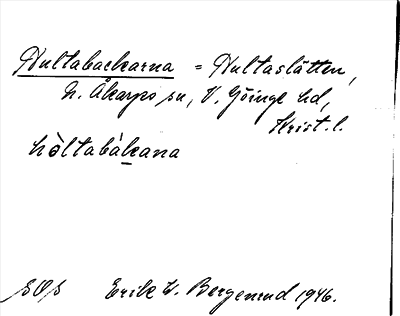 Hultabackarna = Hultaslätten,
N. Åkarps sn, V. Göinge hd,
Krist. l.
hòltabàkana
SOS Erik W. Bergenrud 1946.